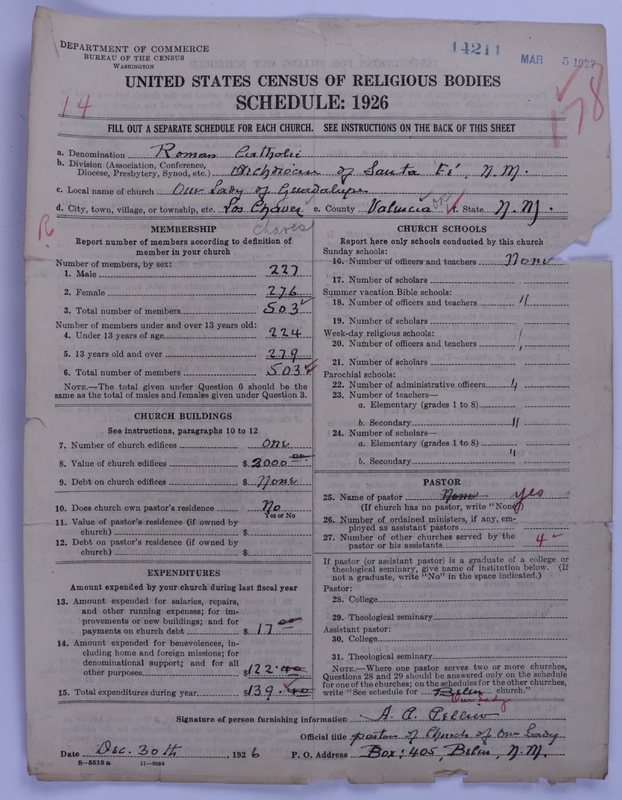 DEPARTMENT OF COMMERCE
BUREAU OF THE CENSUS
WASHINGTON
14211
MAR 5 1927
UNITED STATES CENSUS OF RELIGIOUS BODIES
SCHEDULE: 1926
14
178
FILL OUT A SEPARATE SCHEDULE FOR EACH CHURCH. SEE INSTRUCTIONS ON THE BACK OF THIS SHEET
a. Denomination Roman Catholic
b. Division (Association, Conference, Diocese, Presbytery, Synod, etc.) Archdiocese of Santa Fé, N.M.
c. Local name of church Our Lady of Guadalupe
d. City, town, village, or township, etc. Los Chavez e. County Valencia f. State N.M.
chaves
R
MEMBERSHIP
Report number of members according to definition of member in your church
Number of members, by sex:
1. Male 227
2. Female 276
3. Total number of members 503
Number of members under and over 13 years old:
4. Under 13 years of age 224
5. 13 years old and over 279
6. Total number of members 503
NOTE.—The total given under Question 6 should be the same as the total of males and females given under Question 3.
CHURCH BUILDINGS
See instructions, paragraphs 10 to 12
7. Number of church edifices one
8. Value of church edifices $ 2000 00
9. Debt on church edifices $ None
10. Does church own pastor's residence No
Yes or No
11. Value of pastor's residence (if owned by church) $
12. Debt on pastor's residence (if owned by church) $
EXPENDITURES
Amount expended by your church during last fiscal year
13. Amount expended for salaries, repairs, and other running expenses; for improvements or new buildings; and for payments on church debt $ 17 00
14. Amount expended for benevolences, including home and foreign missions; for denominational support; and for all other purposes $ 122.40
15. Total expenditures during year $ 139.40
CHURCH SCHOOLS
Report here only schools conducted by this church
Sunday schools:
16. Number of officers and teachers None
17. Number of scholars
Summer vacation Bible schools:
18. Number of officers and teachers "
19. Number of scholars
Week-day religious schools:
20. Number of officers and teachers
21. Number of scholars
Parochial schools:
22. Number of administrative officers "
23. Number of teachers—
a. Elementary (grades 1 to 8)
b. Secondary "
24. Number of scholars—
a. Elementary (grades 1 to 8)
b. Secondary "
PASTOR
25. Name of pastor None yes
(If church has no pastor, write "None")
26. Number of ordained ministers, if any, employed as assistant pastors
27. Number of other churches served by the pastor or his assistants 4
If pastor (or assistant pastor) is a graduate of a college or theological seminary, give name of institution below. (If not a graduate, write "No" in the space indicated.)
Pastor:
28. College
29. Theological seminary
Assistant pastor:
30. College
31. Theological seminary
NOTE.—Where one pastor serves two or more churches, Questions 28 and 29 should be answered only on the schedule for one of the churches; on the schedules for the other churches, write "See schedule for Belen church."
Our Lady
Signature of person furnishing information
Official title pastor of Church of Our Lady
Date Dec. 30th, 1926 P. O. Address Box: 405, Belen, N.M.
8—5516 a 11—9064